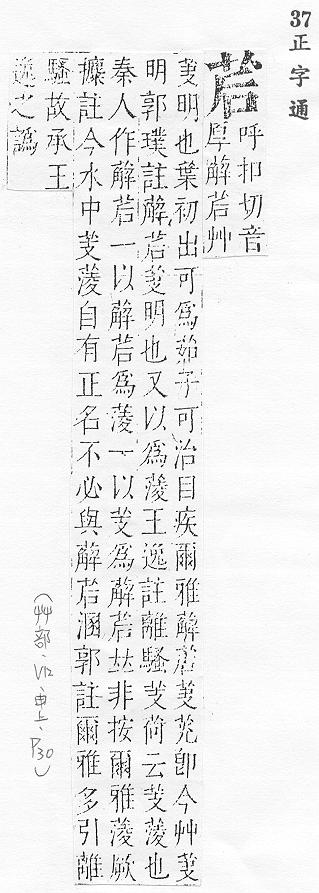 37正字通
茩
呼扣切音
厚薢茩艸
芵明也葉初出可爲茹子可治目疾爾雅薢茩芵茪卽今艸芵
明郭璞註薢茩芵明也又以爲蔆王逸註離騷芰荷云芰蔆也
秦人作薢茩一以薢茩爲蔆一以芰爲薢茩𠀤非按爾雅蔆厥
攗註今水中芰蔆自有正名不必與薢茩溷郭註爾雅多引離
騷故承王
逸之譌
（艸部、V12、申上、P30）